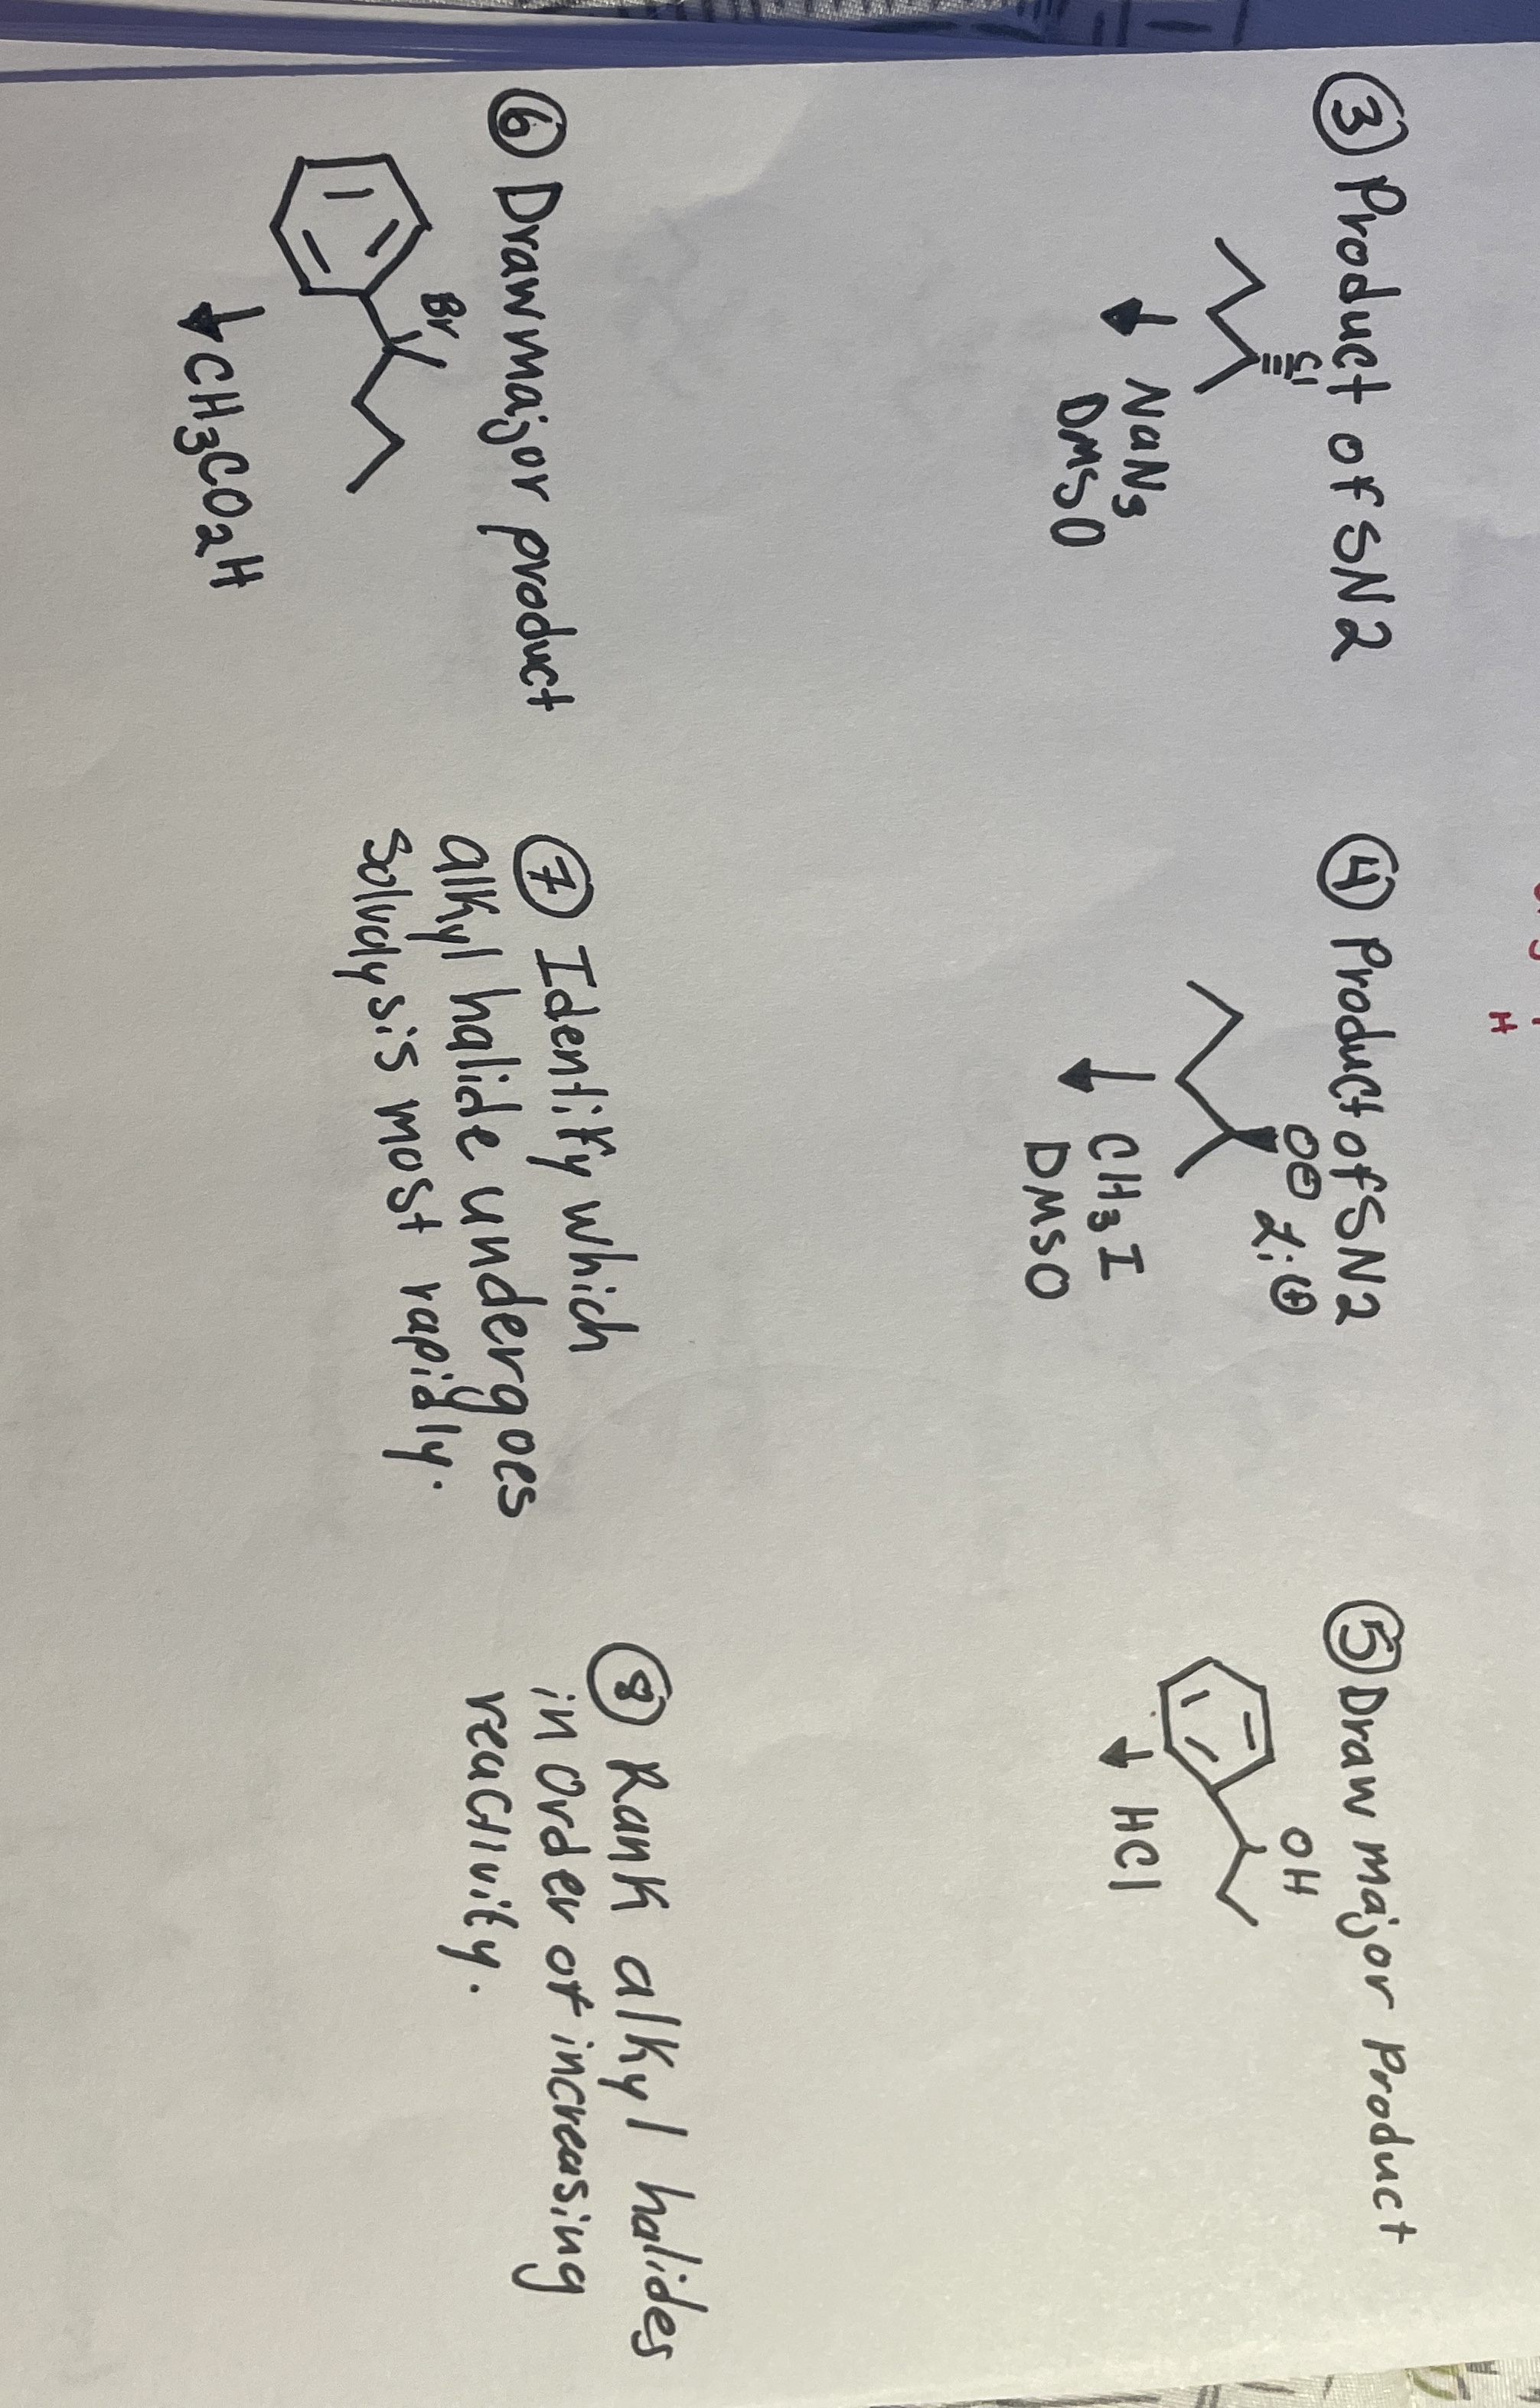 ③ Product of SN2
Cl
NaN3
DMSO
④ Product of SN2
O⊖ Li⊕
CH3I
DMSO
⑤ Draw major Product
OH
HCl
⑥ Draw major product
Br
CH3CO2H
⑦ Identify which
alkyl halide undergoes
solvolysis most rapidly.
⑧ Rank alkyl halides
in order of increasing
reactivity.
H